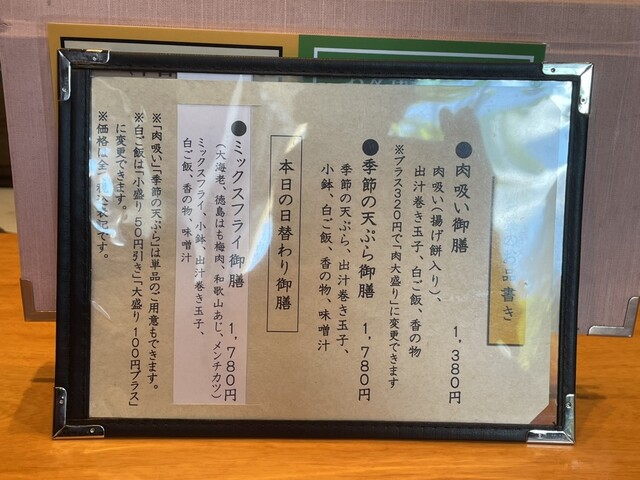 お品書き
●肉吸い御膳 1,380円
肉吸い（揚げ餅入り）、
出汁巻き玉子、白ご飯、香の物
※プラス320円で「肉大盛り」に変更できます
●季節の天ぷら御膳 1,780円
季節の天ぷら、出汁巻き玉子、
小鉢、白ご飯、香の物、味噌汁
本日の日替わり御膳
●ミックスフライ御膳 1,780円
（大海老、徳島はも梅肉、和歌山あじ、メンチカツ）
ミックスフライ、小鉢、出汁巻き玉子、
白ご飯、香の物、味噌汁
※「肉吸い」「季節の天ぷら」は単品のご用意もできます。
※白ご飯は「小盛り 50円引き」「大盛り 100円プラス」
に変更できます。
※価格は全て税込表記です。